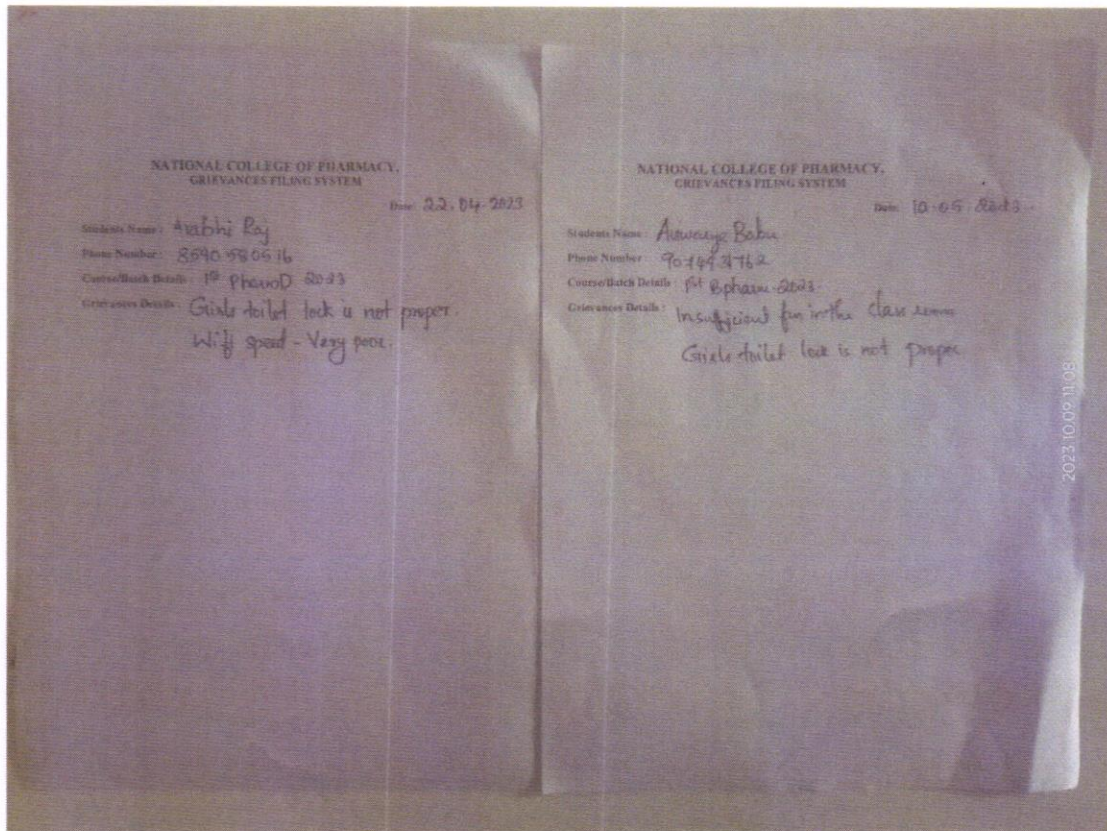 NATIONAL COLLEGE OF PHARMACY,
GRIEVANCES FILING SYSTEM
Date: 22.04.2023
Students Name: Arabhi Raj
Phone Number: 8590580516
Course/Batch Details: 1st PharmD 2023
Grievances Details: Girls toilet lock is not proper.
Wifi speed - Very poor.
NATIONAL COLLEGE OF PHARMACY,
GRIEVANCES FILING SYSTEM
Date: 10.05.2023.
Students Name: Babu
Phone Number:
Course/Batch Details: Bpharm 2023.
Grievances Details: Insufficient fan in the class room
Girls toilet lock is not proper
2023.10.09 11:08